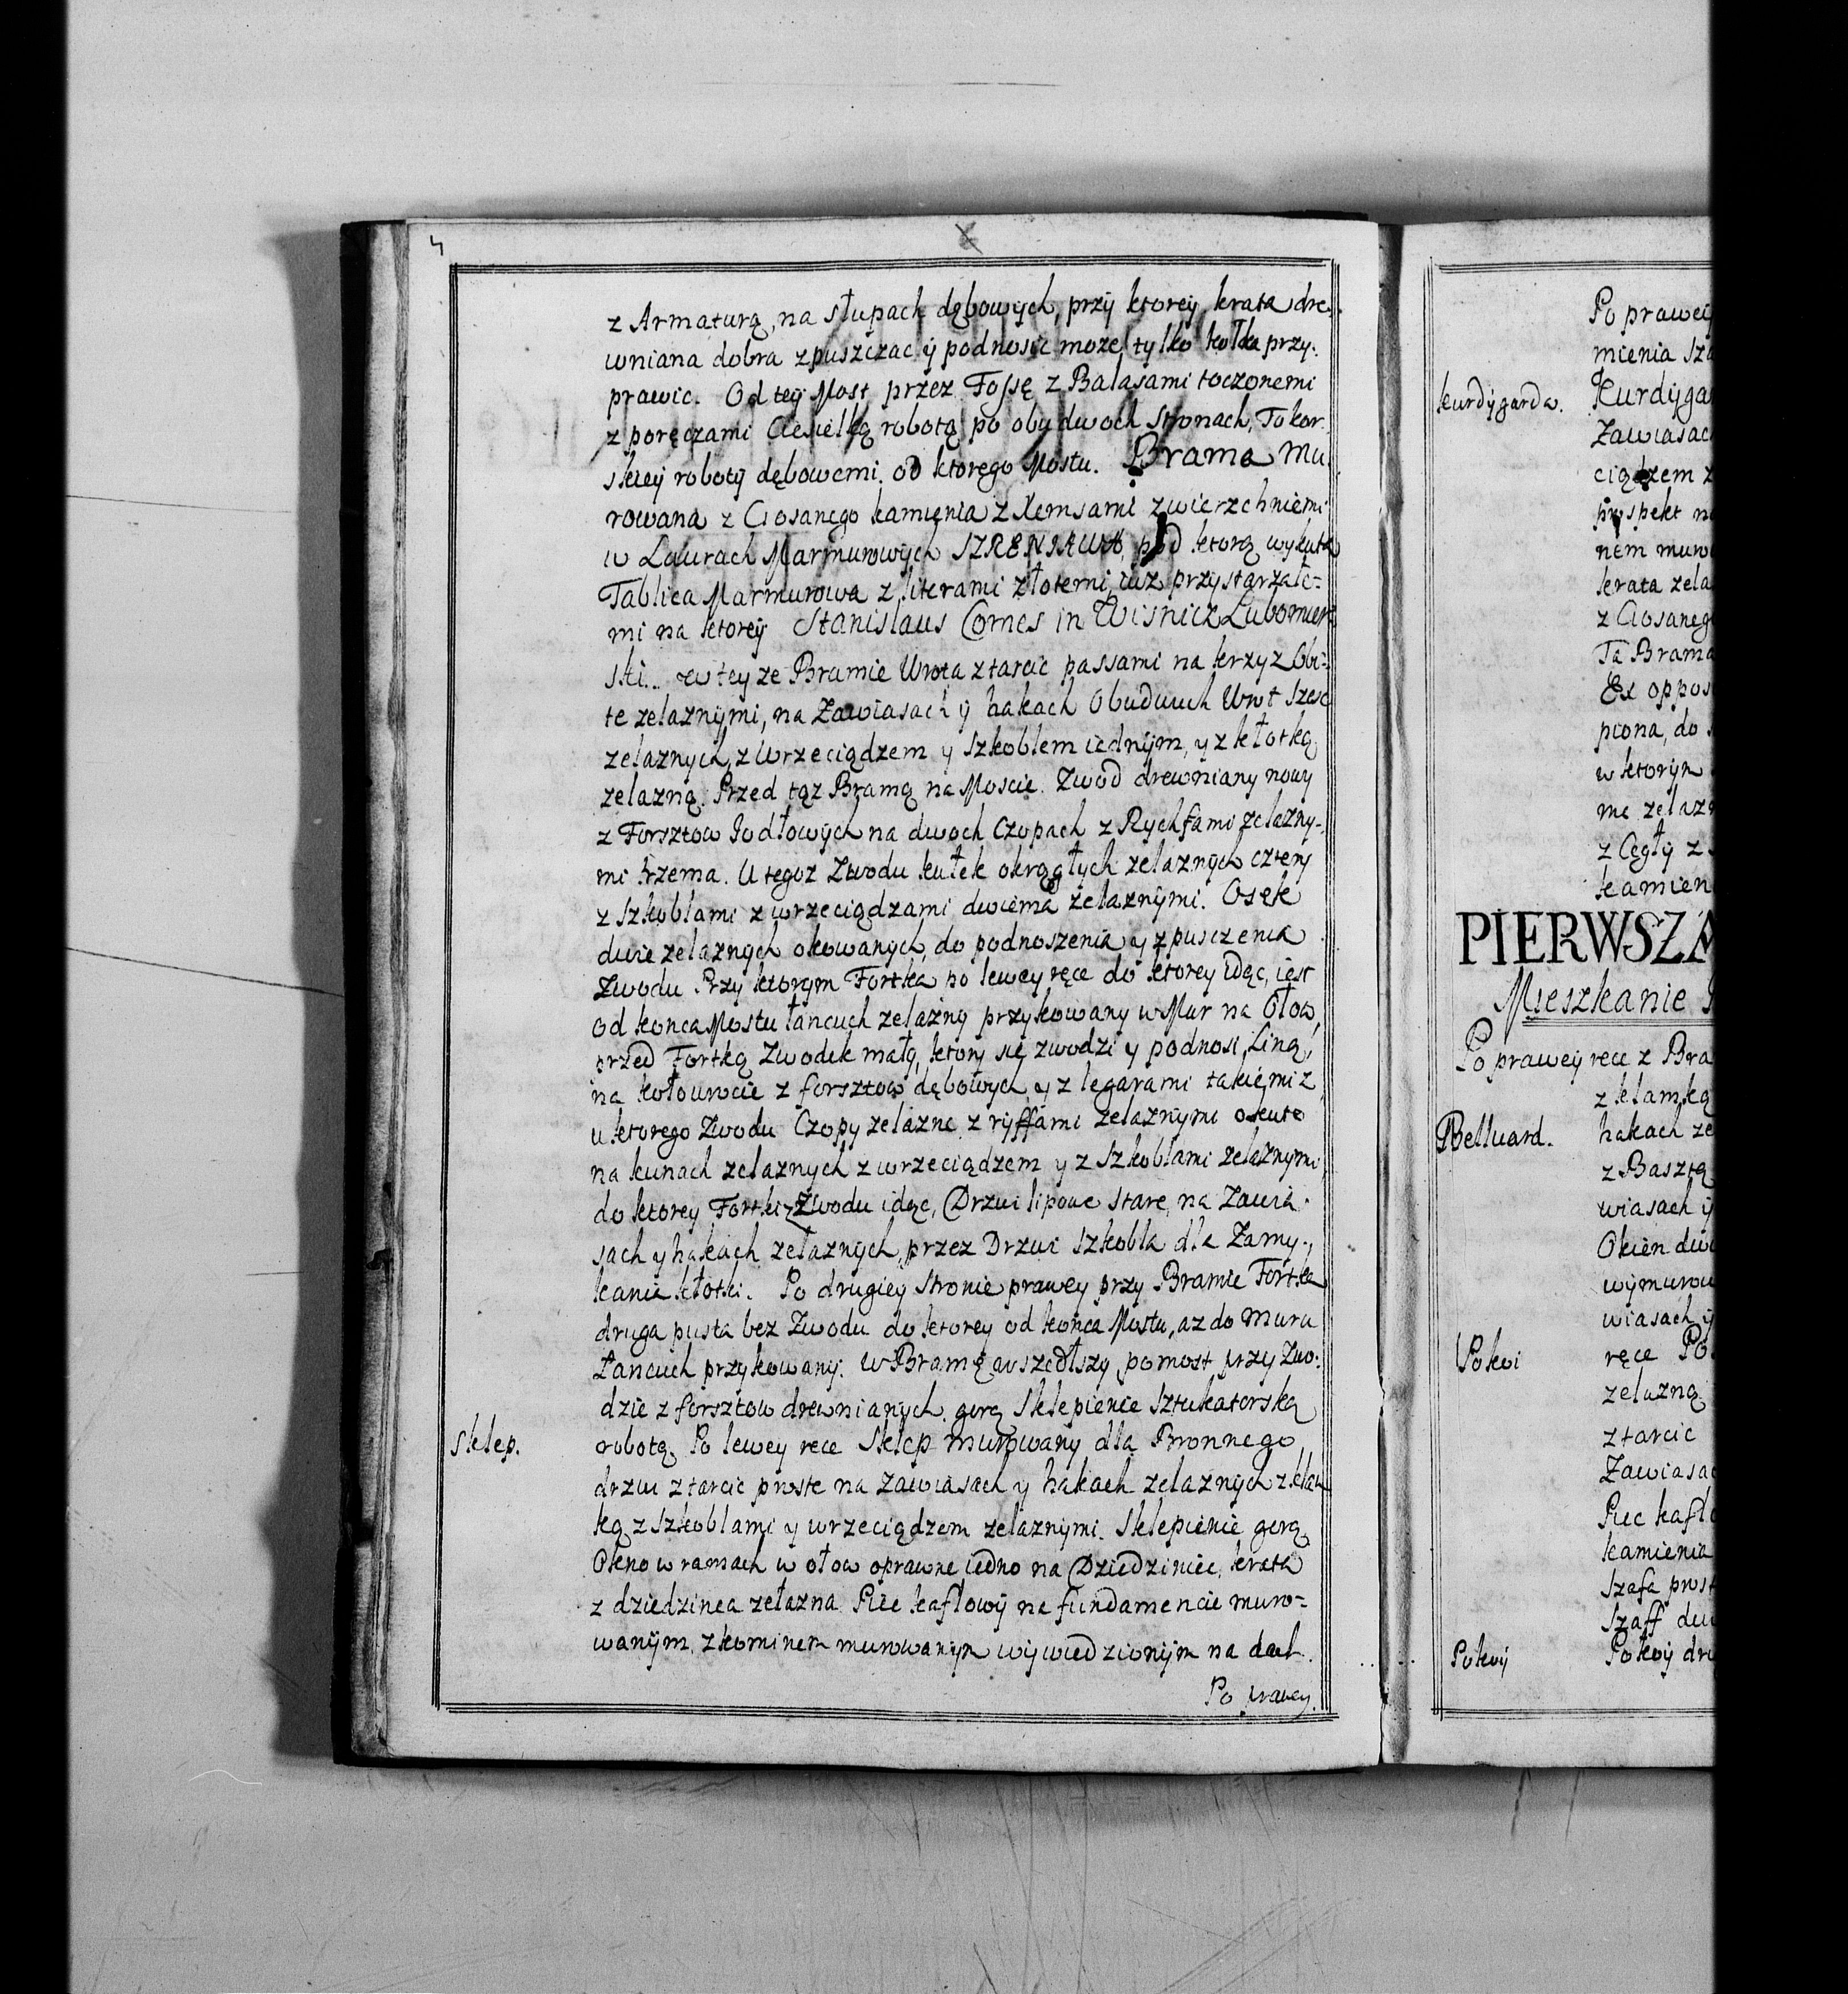 4
z Armaturą, na słupach dębowych, przy ktorey krata dre-
wniana dobra zpuszczac y podnosic moze, tylko kołka przy-
prawic. Od tey Most przez Fossę z Balasami toczonemi
z poręczami Ciesielką robotą po obydwoch stronach, Tokar
skiey roboty dębowemi, od ktorego Mostu. Brama Mu
rowana z Ciosanego kamięnia z Xemsami zwierzchniemi
w Laurach Marmurowych SZRENIAWA, pod ktorą wykuta
Tablica Marmurowa z literami złotemi iuz przystarzałe-
mi na ktorey Stanislaus Comes in Wisnicz Lubomier
ski.. w teyze Bramie Wrota z tarcic passami na krzyz Obi-
te zelaznymi, na Zawiasach y hakach Obudwuch Wrot szesc
zelaznych, z Wrzeciądzem y szkoblem iednym, y z kłotką
zelazną. Przed tąz Bramą na Moscie. Zwod drewniany nowy
z Forsztow Jodłowych na dwoch Czopach z Rychfami zelazny-
mi trzema. U tegoz Zwodu kułek okrągłych zelaznych cztery
z szkoblami z wrzeciądzami dwiema zelaznymi. Osęk
dwie zelaznych okowanych, do podnoszenia y zpusczenia
Zwodu. Przy ktorym Fortka po lewey ręce do ktorey idąc, iest
od konca Mostu łancuch zelazny przykowany w Mur na Ołow,
przed Fortką Zwodek mały, ktory się zwodzi y podnosi Liną,
na kołowrocie z forsztow dębowych y z legarami takiemiz
u ktorego Zwodu Czopy zelazne z ryffami zelaznymi okute
na kunach zelaznych z wrzeciądzem y z szkoblami zelaznymi,
do ktorey Fortki z Zwodu idąc, Drzwi lipowe stare, na Zawia-
sach y hakach zelaznych, przez Drzwi szkobla dla Zamy-
kania kłotki. Po drugiey stronie prawey przy Bramie Fortka
druga pusta bez Zwodu do ktorey od konca Mostu, az do Muru
Łancuch przykowany. w Bramę wszedłszy pomost przy Zwo-
dzie z forsztow drewnianych. gorą Sklepienie Sztukatorską
Sklep.
robotą. Po lewey rece Sklep murowany dla Bronnego
drzwi z tarcic proste na Zawiasach y hakach zelaznych z klam
ką z szkoblami y wrzeciądzem zelaznymi. Sklepienie gorą
Okno w ramach w ołow oprawne iedno na Dziedziniec, krata
z dziedzinca zelazna. Piec kaflowy na fundamencie muro-
wanym, z kominem murowanym wywiedzionym na dach.
Po prawey.
Po prawey
mienia
kurdygarda.
Kurdyga
Zawiasach
ciądzem z
prospekt
nem
krata zela
z Ciosaneg
Ta Brama
Ex oppos
piona, do
w ktorym
me zelaz
z Cegły z
kamien
PIERWSZA
Mieszkanie
Po prawey rece z Bra
z klamką
Belluard.
hakach ze
z Basztą
wiasach y
Okien
wymurow
wiasach y
Pokoi
ręce Po
zelazną
z tarcic
Zawiasa
Piec kaflo
kamienia
szafa prost
szaff
Pokoy
Pokoy